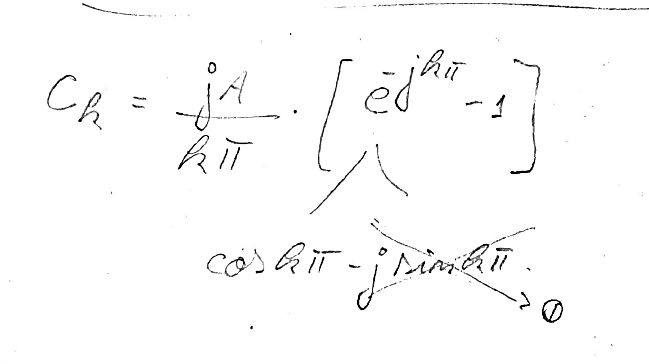 C_k = jA/kπ · [e^{-jkπ} - 1]
cos kπ - j sin kπ. → 0